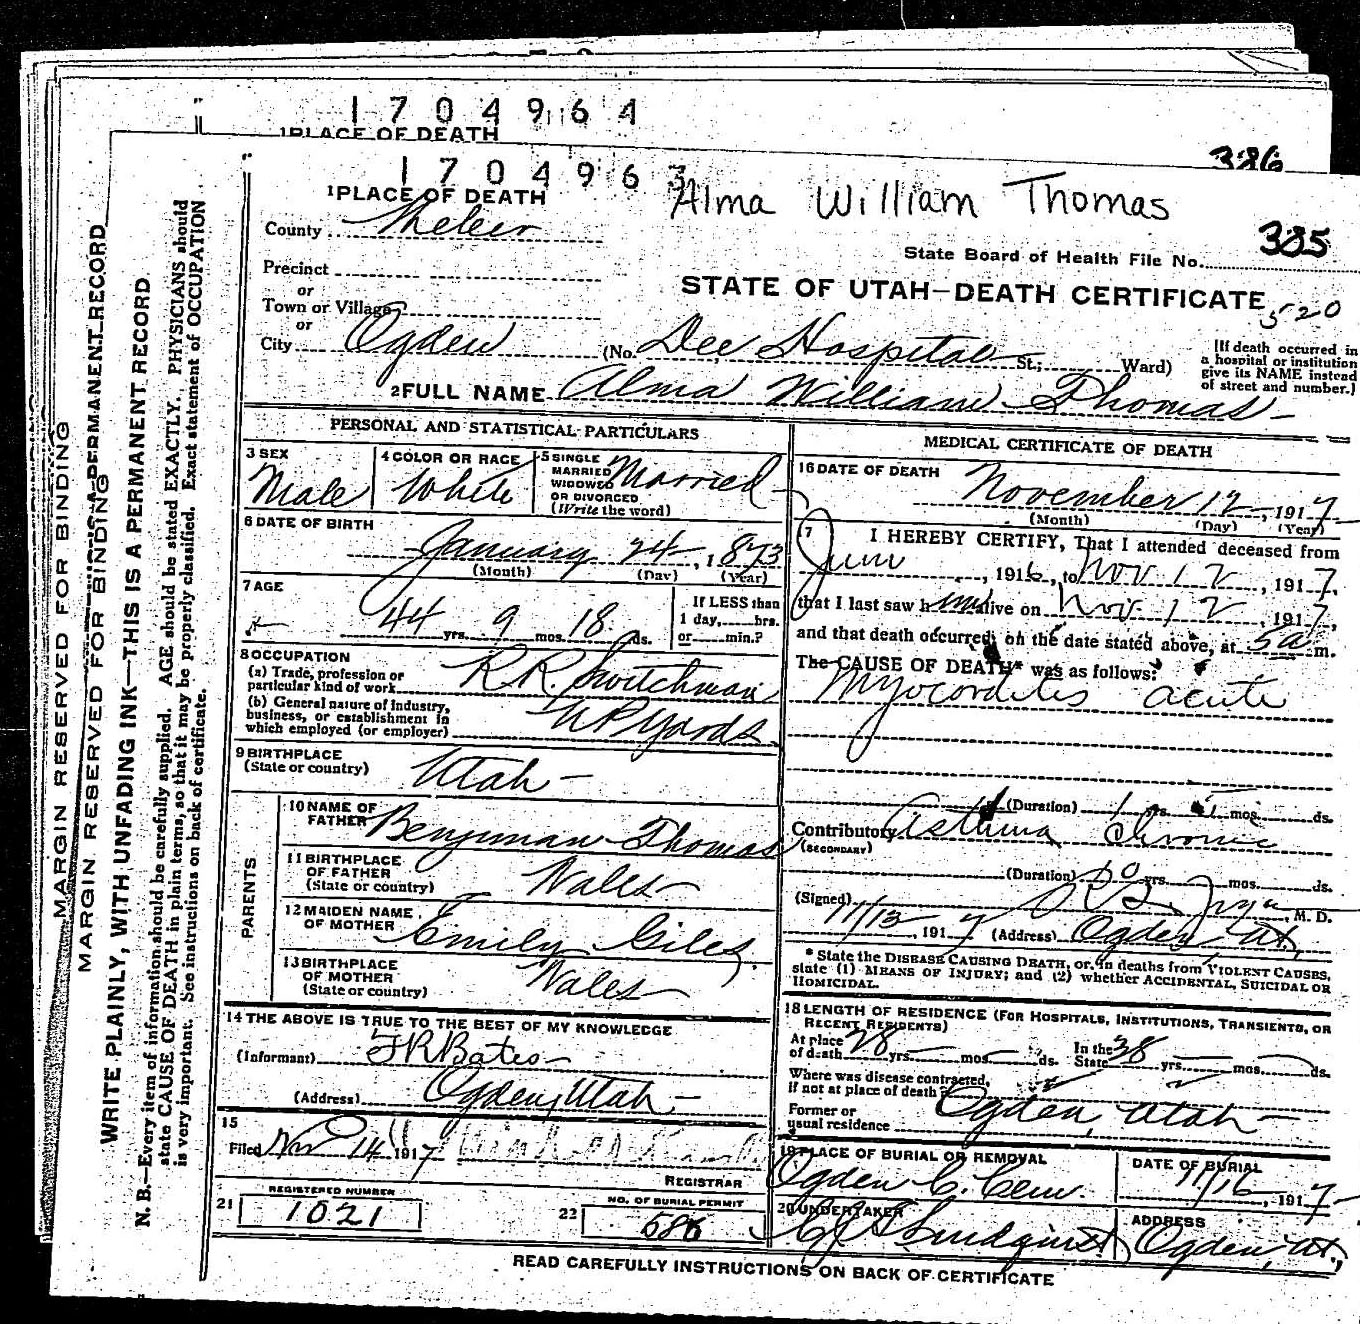 1704964
1 PLACE OF DEATH
386
1704963
Alma William Thomas
1 PLACE OF DEATH
County Weber
385
State Board of Health File No.
Precinct
or
STATE OF UTAH—DEATH CERTIFICATE
520
Town or Village
or
City Ogden (No. Dee Hospital St.; Ward)
[If death occurred in
a hospital or institution
give its NAME instead
of street and number.]
2 FULL NAME Alma William Thomas
PERSONAL AND STATISTICAL PARTICULARS
3 SEX
Male
4 COLOR OR RACE
White
5 SINGLE
MARRIED
WIDOWED
OR DIVORCED
(Write the word)
Married
6 DATE OF BIRTH
January 24, 1873
(Month) (Day) (Year)
7 AGE
44 yrs. 9 mos. 18 ds.
If LESS than
1 day, hrs.
or min.?
8 OCCUPATION
(a) Trade, profession or
particular kind of work R.R. Switchman
(b) General nature of Industry,
business, or establishment in
which employed (or employer) U P Yards
9 BIRTHPLACE
(State or country) Utah
PARENTS
10 NAME OF
FATHER Benjiman Thomas
11 BIRTHPLACE
OF FATHER
(State or country) Wales
12 MAIDEN NAME
OF MOTHER Emily Giles
13 BIRTHPLACE
OF MOTHER
(State or country) Wales
14 THE ABOVE IS TRUE TO THE BEST OF MY KNOWLEDGE
(Informant) F R Bates
(Address) Ogden, Utah
15
Filed Nov 14 1917
REGISTRAR
21
REGISTERED NUMBER
1021
22
NO. OF BURIAL PERMIT
586
MEDICAL CERTIFICATE OF DEATH
16 DATE OF DEATH
November 12, 1917
(Month) (Day) (Year)
17 I HEREBY CERTIFY, That I attended deceased from
June, 1916, to Nov 12, 1917,
that I last saw him alive on Nov. 12, 1917,
and that death occurred, on the date stated above, at 5 a m.
The CAUSE OF DEATH* was as follows:
Myocorditis acute
(Duration) 1 yrs. 5 mos. ds.
Contributory Asthma Chronic
(SECONDARY)
(Duration) yrs. mos. ds.
(Signed) , M. D.
11/13, 1917 (Address) Ogden, Ut.
* State the DISEASE CAUSING DEATH, or, in deaths from VIOLENT CAUSES,
state (1) MEANS OF INJURY; and (2) whether ACCIDENTAL, SUICIDAL OR
HOMICIDAL.
18 LENGTH OF RESIDENCE (FOR HOSPITALS, INSTITUTIONS, TRANSIENTS, OR
RECENT RESIDENTS)
At place
of death 28 yrs. mos. ds.
In the
State 38 yrs. mos. ds.
Where was disease contracted,
if not at place of death?
Former or
usual residence Ogden, Utah
19 PLACE OF BURIAL OR REMOVAL
Ogden C. Cem.
DATE OF BURIAL
11/16, 1917
20 UNDERTAKER
Lindquist
ADDRESS
Ogden, Ut.
READ CAREFULLY INSTRUCTIONS ON BACK OF CERTIFICATE
MARGIN RESERVED FOR BINDING
MARGIN RESERVED FOR BINDING
PERMANENT RECORD
WRITE PLAINLY, WITH UNFADING INK—THIS IS A PERMANENT RECORD
N. B.—Every item of information should be carefully supplied. AGE should be stated EXACTLY. PHYSICIANS should
state CAUSE OF DEATH in plain terms, so that it may be properly classified. Exact statement of OCCUPATION
is very important. See instructions on back of certificate.